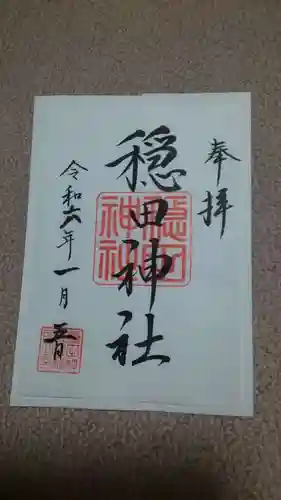 奉拝
穏田神社
令和六年一月五日
穏田
神社